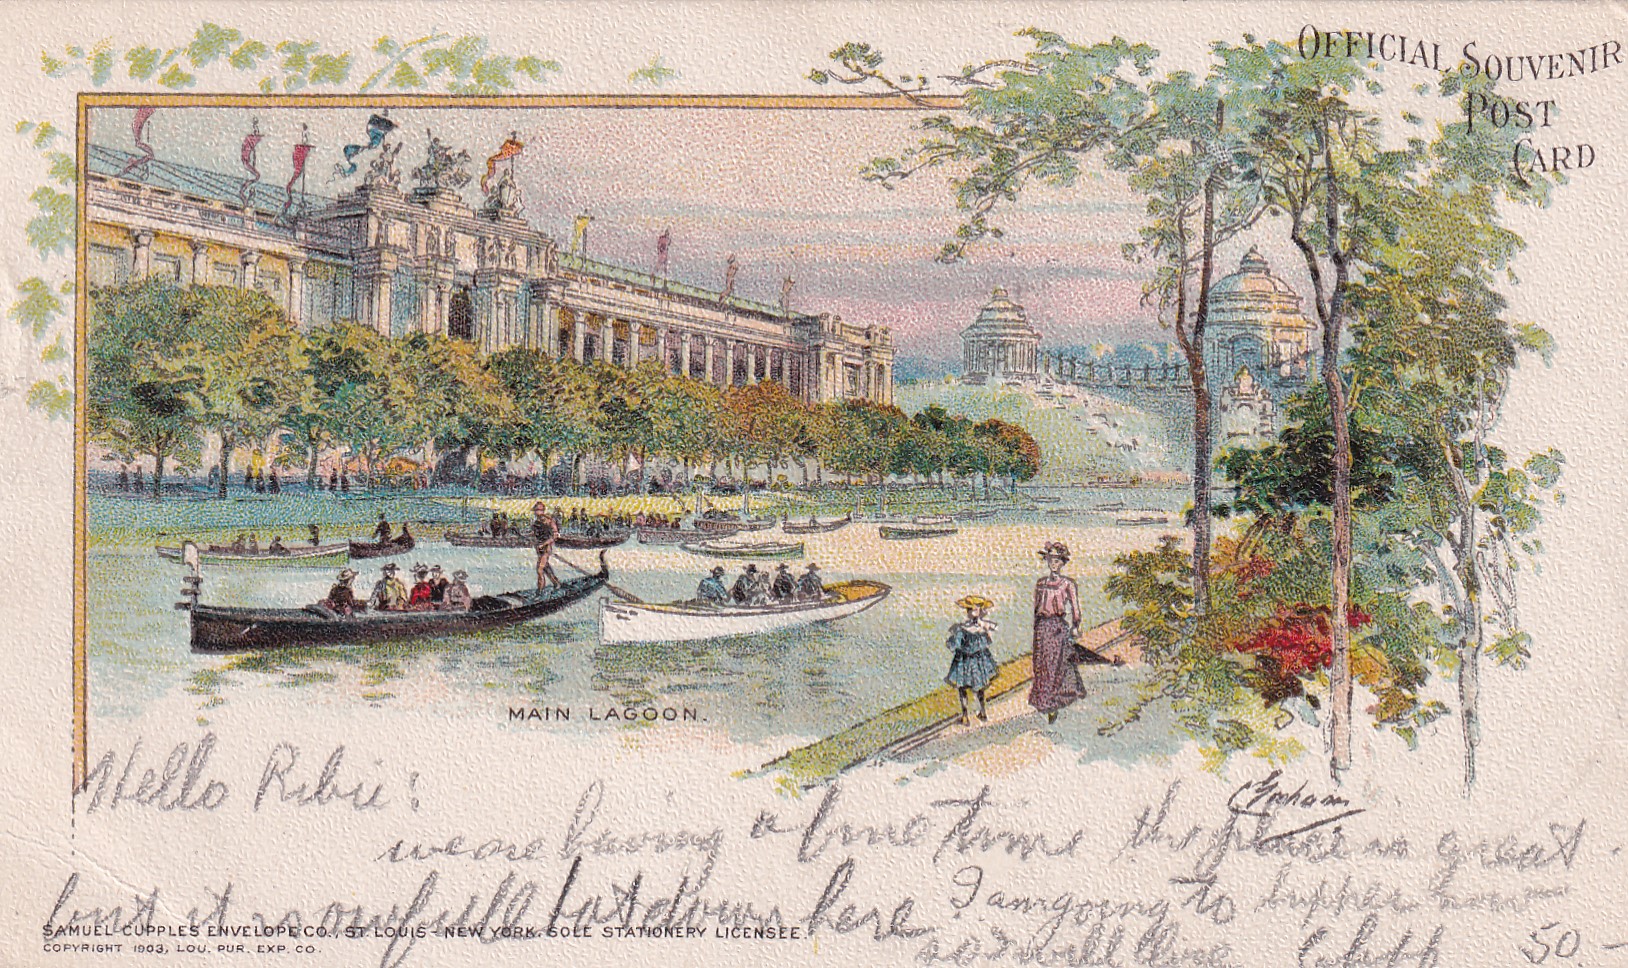 OFFICIAL SOUVENIR
POST
CARD
MAIN LAGOON.
Hello
we are having a fine time the place is great.
but it is awfull hot down here I am going to supper now
so will close 50.-
SAMUEL CUPPLES ENVELOPE CO., ST. LOUIS - NEW YORK. SOLE STATIONERY LICENSEE.
COPYRIGHT 1903, LOU. PUR. EXP. CO.